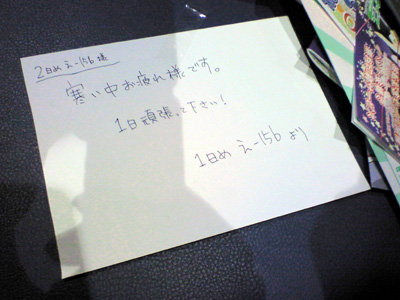 2日め え-156 様
寒い中お疲れ様です。
1日頑張って下さい!
1日め え-156 より